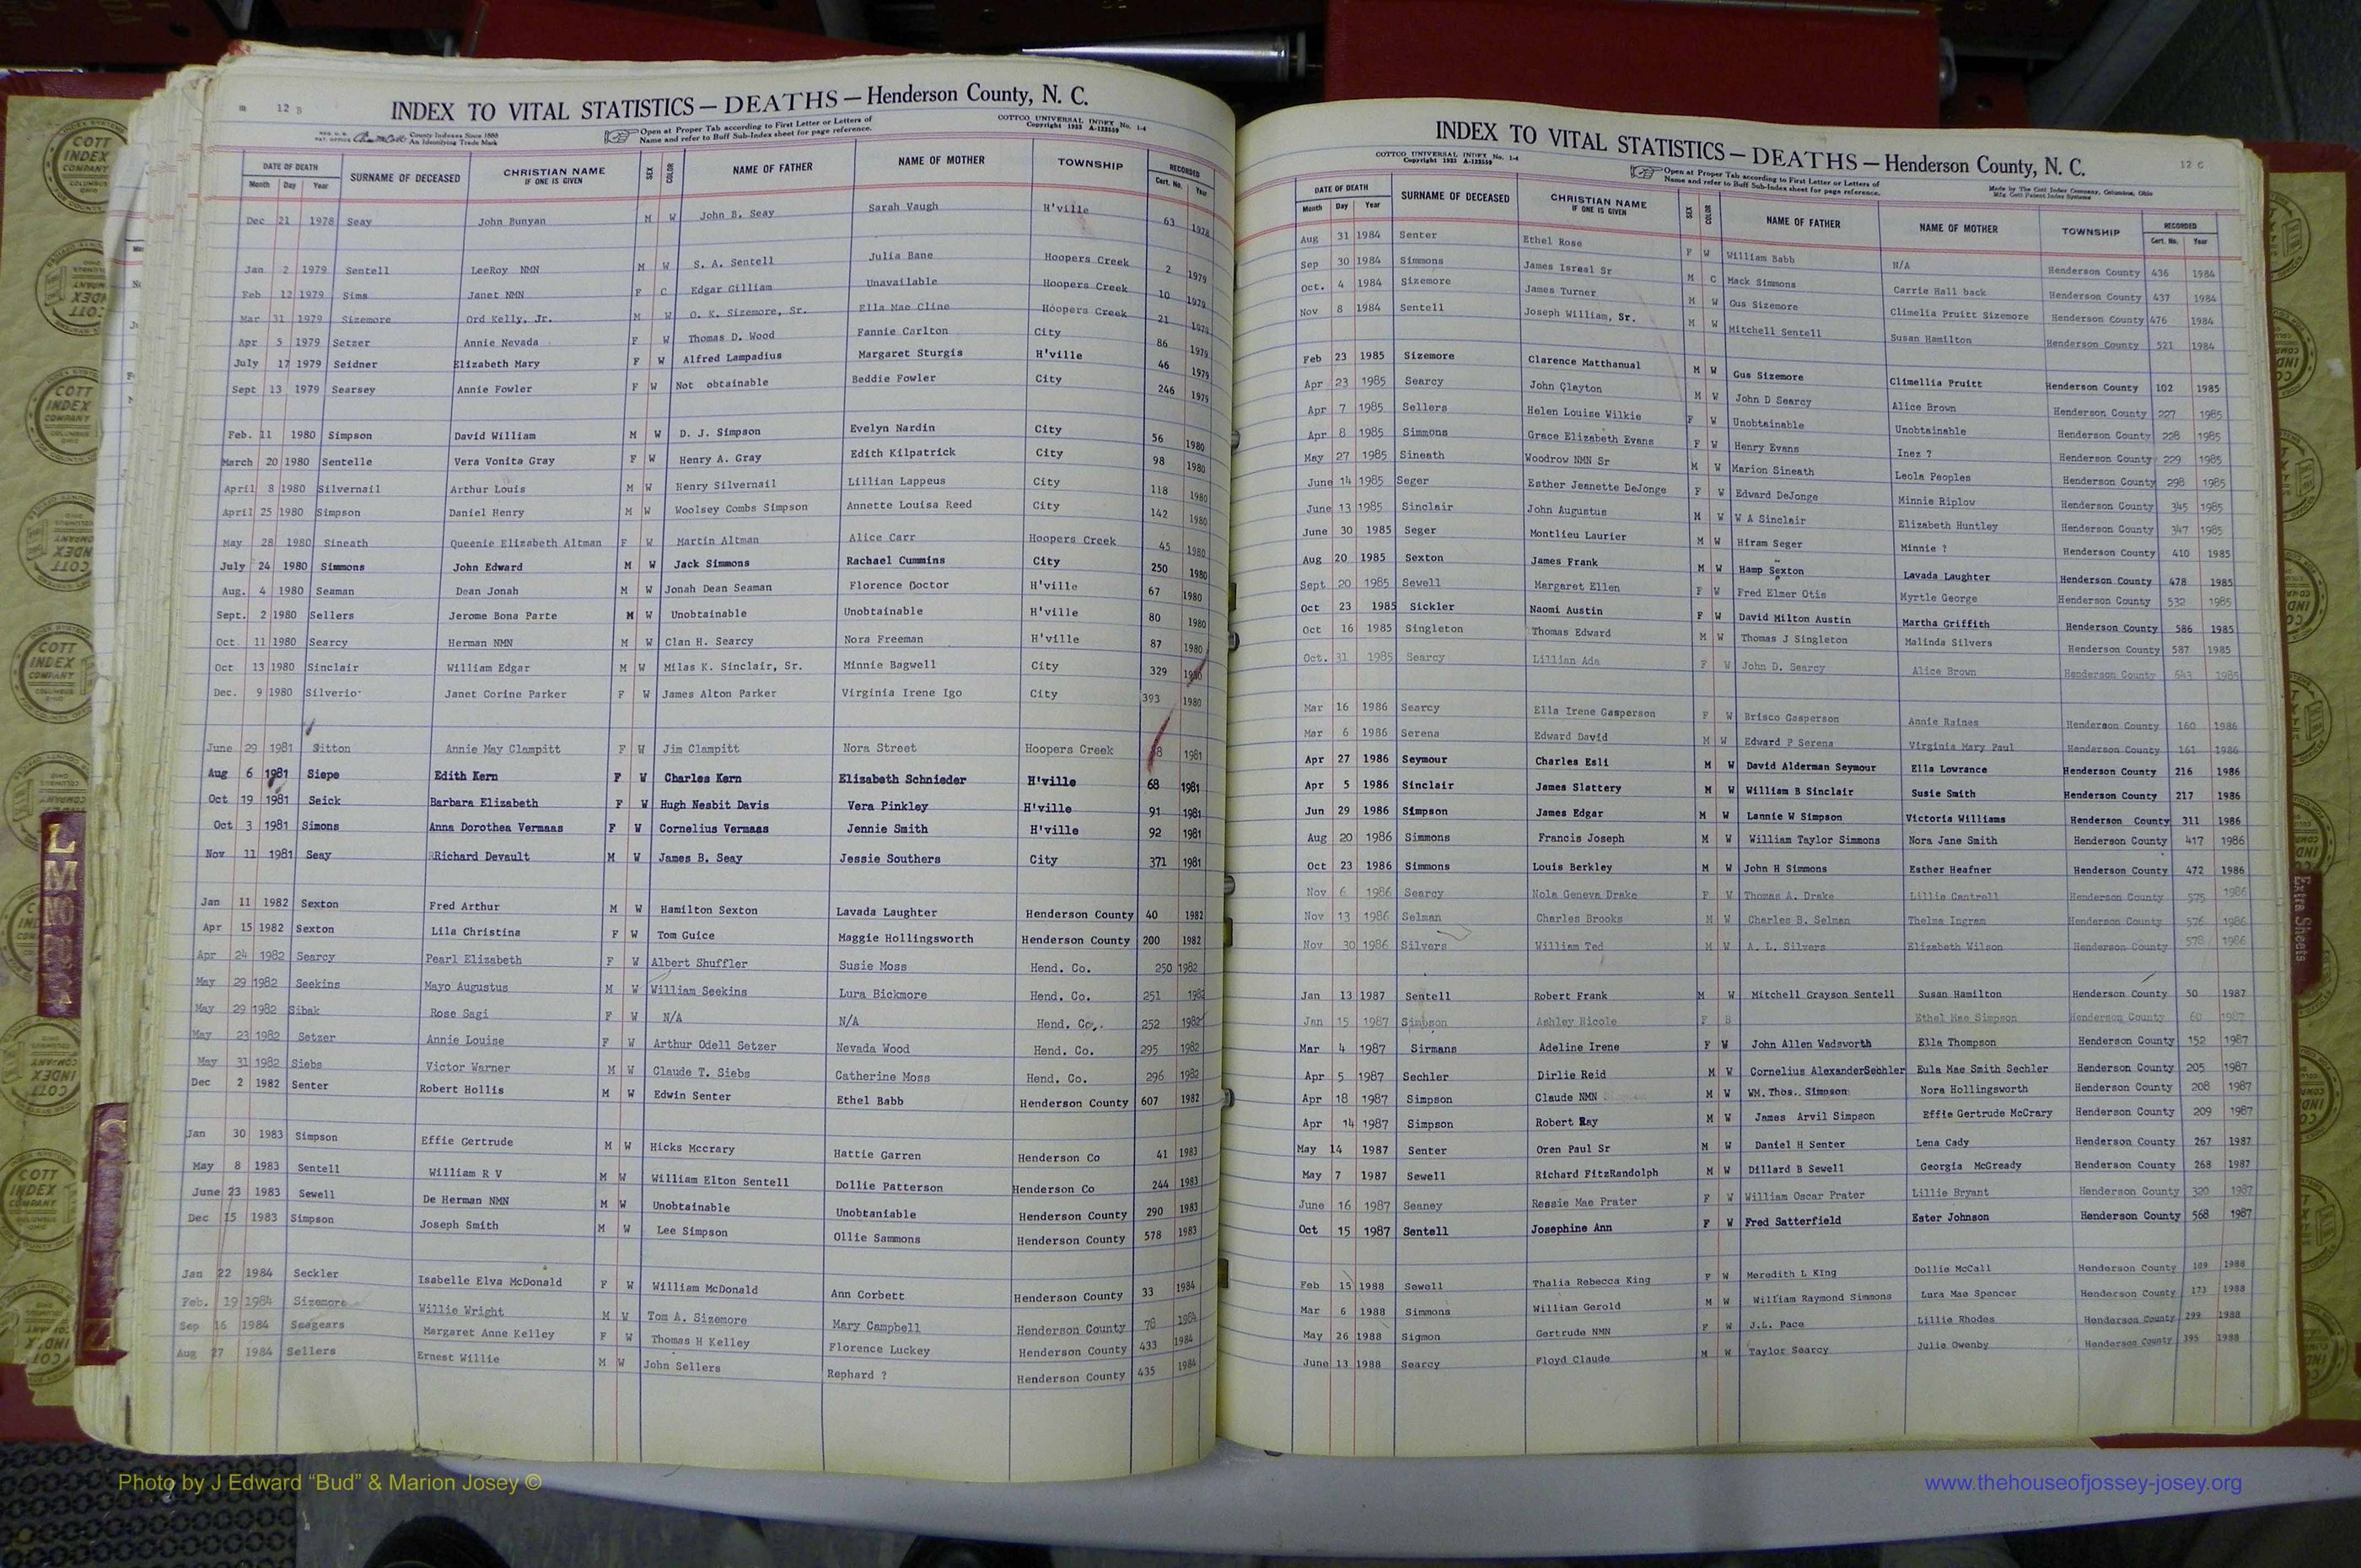 m 12 B
INDEX TO VITAL STATISTICS — DEATHS — Henderson County, N. C.
County Indexes Since 1888
An Identifying Trade Mark
Open at Proper Tab according to First Letter or Letters of
Name and refer to Buff Sub-Index sheet for page reference.
COTTCO UNIVERSAL INDEX No. 1-4
Copyright 1933 A-123559
DATE OF DEATH SURNAME OF DECEASED CHRISTIAN NAME IF ONE IS GIVEN SEX COLOR NAME OF FATHER NAME OF MOTHER TOWNSHIP RECORDED
Month Day Year Cert. No. Year
Dec 21 1978 Seay John Bunyan M W John B. Seay Sarah Vaugh H'ville 63 1978
Jan 2 1979 Sentell LeeRoy NMN M W S. A. Sentell Julia Bane Hoopers Creek 2 1979
Feb 12 1979 Sims Janet NMN F C Edgar Gilliam Unavailable Hoopers Creek 10 1979
Mar 31 1979 Sizemore Ord Kelly, Jr. M W O. K. Sizemore, Sr. Ella Mae Cline Hoopers Creek 21 1979
Apr 5 1979 Setzer Annie Nevada F W Thomas D. Wood Fannie Carlton City 86 1979
July 17 1979 Seidner Elizabeth Mary F W Alfred Lampadius Margaret Sturgis H'ville 46 1979
Sept 13 1979 Searsey Annie Fowler F W Not obtainable Beddie Fowler City 246 1979
Feb. 11 1980 Simpson David William M W D. J. Simpson Evelyn Nardin City 56 1980
March 20 1980 Sentelle Vera Vonita Gray F W Henry A. Gray Edith Kilpatrick City 98 1980
April 8 1980 Silvernail Arthur Louis M W Henry Silvernail Lillian Lappeus City 118 1980
April 25 1980 Simpson Daniel Henry M W Woolsey Combs Simpson Annette Louisa Reed City 142 1980
May 28 1980 Sineath Queenie Elizabeth Altman F W Martin Altman Alice Carr Hoopers Creek 45 1980
July 24 1980 Simmons John Edward M W Jack Simmons Rachael Cummins City 250 1980
Aug. 4 1980 Seaman Dean Jonah M W Jonah Dean Seaman Florence Doctor H'ville 67 1980
Sept. 2 1980 Sellers Jerome Bona Parte M W Unobtainable Unobtainable H'ville 80 1980
Oct. 11 1980 Searcy Herman NMN M W Clan H. Searcy Nora Freeman H'ville 87 1980
Oct 13 1980 Sinclair William Edgar M W Milas K. Sinclair, Sr. Minnie Bagwell City 329 1980
Dec. 9 1980 Silverio Janet Corine Parker F W James Alton Parker Virginia Irene Igo City 393 1980
June 29 1981 Sitton Annie May Clampitt F W Jim Clampitt Nora Street Hoopers Creek 8 1981
Aug 6 1981 Siepe Edith Kern F W Charles Kern Elizabeth Schnieder H'ville 68 1981
Oct 19 1981 Seick Barbara Elizabeth F W Hugh Nesbit Davis Vera Pinkley H'ville 91 1981
Oct 3 1981 Simons Anna Dorothea Vermaas F W Cornelius Vermaas Jennie Smith H'ville 92 1981
Nov 11 1981 Seay RRichard Devault M W James B. Seay Jessie Southers City 371 1981
Jan 11 1982 Sexton Fred Arthur M W Hamilton Sexton Lavada Laughter Henderson County 40 1982
Apr 15 1982 Sexton Lila Christina F W Tom Guice Maggie Hollingsworth Henderson County 200 1982
Apr 24 1982 Searcy Pearl Elizabeth F W Albert Shuffler Susie Moss Hend. Co. 250 1982
May 29 1982 Seekins Mayo Augustus M W William Seekins Lura Bickmore Hend. Co. 251 1982
May 29 1982 Sibak Rose Sagi F W N/A N/A Hend. Co. 252 1982
May 23 1982 Setzer Annie Louise F W Arthur Odell Setzer Nevada Wood Hend. Co. 295 1982
May 31 1982 Siebs Victor Warner M W Claude T. Siebs Catherine Moss Hend. Co. 296 1982
Dec 2 1982 Senter Robert Hollis M W Edwin Senter Ethel Babb Henderson County 607 1982
Jan 30 1983 Simpson Effie Gertrude M W Hicks Mccrary Hattie Garren Henderson Co 41 1983
May 8 1983 Sentell William R V M W William Elton Sentell Dollie Patterson Henderson Co 244 1983
June 23 1983 Sewell De Herman NMN M W Unobtainable Unobtaniable Henderson County 290 1983
Dec 15 1983 Simpson Joseph Smith M W Lee Simpson Ollie Sammons Henderson County 578 1983
Jan 22 1984 Seckler Isabelle Elva McDonald F W William McDonald Ann Corbett Henderson County 33 1984
Feb. 19 1984 Sizemore Willie Wright M W Tom A. Sizemore Mary Campbell Henderson County 78 1984
Sep 16 1984 Seagears Margaret Anne Kelley F W Thomas H Kelley Florence Luckey Henderson County 433 1984
Aug 27 1984 Sellers Ernest Willie M W John Sellers Rephard ? Henderson County 435 1984
INDEX TO VITAL STATISTICS — DEATHS — Henderson County, N. C.
12 C
COTTCO UNIVERSAL INDEX No. 1-4
Copyright 1933 A-123559
Open at Proper Tab according to First Letter or Letters of
Name and refer to Buff Sub-Index sheet for page reference.
Made by The Cott Index Company, Columbus, Ohio
Mfg. Cott Patent Index Systems
DATE OF DEATH SURNAME OF DECEASED CHRISTIAN NAME IF ONE IS GIVEN SEX COLOR NAME OF FATHER NAME OF MOTHER TOWNSHIP RECORDED
Month Day Year Cert. No. Year
Aug 31 1984 Senter Ethel Rose F W William Babb N/A Henderson County 436 1984
Sep 30 1984 Simmons James Isreal Sr M C Mack Simmons Carrie Hall back Henderson County 437 1984
Oct. 4 1984 Sizemore James Turner M W Gus Sizemore Climelia Pruitt Sizemore Henderson County 476 1984
Nov 8 1984 Sentell Joseph William, Sr. M W Mitchell Sentell Susan Hamilton Henderson County 521 1984
Feb 23 1985 Sizemore Clarence Matthanual M W Gus Sizemore Climellia Pruitt Henderson County 102 1985
Apr 23 1985 Searcy John Clayton M W John D Searcy Alice Brown Henderson County 227 1985
Apr 7 1985 Sellers Helen Louise Wilkie F W Unobtainable Unobtainable Henderson County 228 1985
Apr 8 1985 Simmons Grace Elizabeth Evans F W Henry Evans Inez ? Henderson County 229 1985
May 27 1985 Sineath Woodrow NMN Sr M W Marion Sineath Leola Peoples Henderson County 298 1985
June 14 1985 Seger Esther Jeanette DeJonge F W Edward DeJonge Minnie Riplow Henderson County 345 1985
June 13 1985 Sinclair John Augustus M W W A Sinclair Elizabeth Huntley Henderson County 347 1985
June 30 1985 Seger Montlieu Laurier M W Hiram Seger Minnie ? Henderson County 410 1985
Aug 20 1985 Sexton James Frank M W Hamp Sexton Lavada Laughter Henderson County 478 1985
Sept. 20 1985 Sewell Margaret Ellen F W Fred Elmer Otis Myrtle George Henderson County 532 1985
Oct 23 1985 Sickler Naomi Austin F W David Milton Austin Martha Griffith Henderson County 586 1985
Oct 16 1985 Singleton Thomas Edward M W Thomas J Singleton Malinda Silvers Henderson County 587 1985
Oct. 31 1985 Searcy Lillian Ada F W John D. Searcy Alice Brown Henderson County 643 1985
Mar 16 1986 Searcy Ella Irene Gasperson F W Brisco Gasperson Annie Raines Henderson County 160 1986
Mar 6 1986 Serena Edward David M W Edward P Serena Virginia Mary Paul Henderson County 161 1986
Apr 27 1986 Seymour Charles Esli M W David Alderman Seymour Ella Lowrance Henderson County 216 1986
Apr 5 1986 Sinclair James Slattery M W William B Sinclair Susie Smith Henderson County 217 1986
Jun 29 1986 Simpson James Edgar M W Lannie W Simpson Victoria Williams Henderson County 311 1986
Aug 20 1986 Simmons Francis Joseph M W William Taylor Simmons Nora Jane Smith Henderson County 417 1986
Oct 23 1986 Simmons Louis Berkley M W John H Simmons Esther Heafner Henderson County 472 1986
Nov 6 1986 Searcy Nola Geneva Drake F W Thomas A. Drake Lillie Cantrell Henderson County 575 1986
Nov 13 1986 Selman Charles Brooks M W Charles B. Selman Thelma Ingram Henderson County 576 1986
Nov 30 1986 Silvers William Ted M W A. L. Silvers Elizabeth Wilson Henderson County 578 1986
Jan 13 1987 Sentell Robert Frank M W Mitchell Grayson Sentell Susan Hamilton Henderson County 50 1987
Jan 15 1987 Simpson Ashley Nicole F B Ethel Mae Simpson Henderson County 60 1987
Mar 4 1987 Sirmans Adeline Irene F W John Allen Wadsworth Ella Thompson Henderson County 152 1987
Apr 5 1987 Sechler Dirlie Reid M W Cornelius AlexanderSechler Eula Mae Smith Sechler Henderson County 205 1987
Apr 18 1987 Simpson Claude NMN M W WM. Thos. Simpson Nora Hollingsworth Henderson County 208 1987
Apr 14 1987 Simpson Robert Ray M W James Arvil Simpson Effie Gertrude McCrary Henderson County 209 1987
May 14 1987 Senter Oren Paul Sr M W Daniel H Senter Lena Cady Henderson County 267 1987
May 7 1987 Sewell Richard FitzRandolph M W Dillard B Sewell Georgia McGready Henderson County 268 1987
June 16 1987 Seaney Ressie Mae Prater F W William Oscar Prater Lillie Bryant Henderson County 320 1987
Oct 15 1987 Sentell Josephine Ann F W Fred Satterfield Ester Johnson Henderson County 568 1987
Feb 15 1988 Sewell Thalia Rebecca King F W Meredith L KIng Dollie McCall Henderson County 109 1988
Mar 6 1988 Simmons William Gerold M W William Raymond Simmons Lura Mae Spencer Henderson County 173 1988
May 26 1988 Sigmon Gertrude NMN F W J.L. Pace Lillie Rhodes Henderson County 299 1988
June 13 1988 Searcy Floyd Claude M W Taylor Searcy Julie Owenby Henderson County 395 1988
COTT INDEX COMPANY
L
M
Extra Sheets
Photo by J Edward “Bud” & Marion Josey ©
www.thehouseofjossey-josey.org